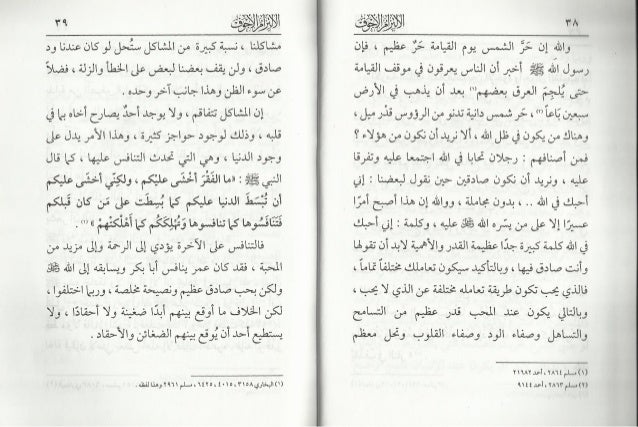 ٣٨
الالتزام الأجوف
والله إن حَرَّ الشمس يوم القيامة حَرٌ عظيم ، فإن
رسول الله ﷺ أخبر أن الناس يعرقون في موقف القيامة
حتى يُلجِمَ العرق بعضهم(١) بعد أن يذهب في الأرض
سبعين بَاعاً(٢) ، حَر شمس دانية تدنو من الرؤوس قدْر ميل ،
وهناك من يكون في ظل الله ، ألا نريد أن نكون من هؤلاء ؟
فمن أصنافهم : رجلان تحابا في الله اجتمعا عليه وتفرقا
عليه ، ونريد أن نكون صادقين حين نقول لبعضنا : إني
أحبك في الله .. ، بدون مجاملة ، ووالله إن هذا أصبح أمرًا
عسيرًا إلا على من يسّره الله ﷻ عليه ، وكلمة : إني أحبك
في الله كلمة كبيرة جدًا عظيمة القدر والأهمية لابد أن تقولها
وأنت صادق فيها ، وبالتأكيد سيكون تعاملك مختلفاً تماماً ،
فالذي يحب تكون طريقة تعامله مختلفة عن الذي لا يحب ،
وبالتالي يكون عند المحب قدر عظيم من التسامح
والتساهل وصفاء الود وصفاء القلوب وتحل معظم
(١) مسلم ٢٨٦٤ ، أحمد ٢١٦٨٢
(٢) مسلم ٢٨٦٣ ، أحمد ٩١٤٤
الالتزام الأجوف
٣٩
مشاكلنا ، نسبة كبيرة من المشاكل ستُحل لو كان عندنا ود
صادق ، ولن يقف بعضنا لبعض على الخطأ والزلة ، فضلاً
عن سوء الظن وهذا جانب آخر وحده .
إن المشاكل تتفاقم ، ولا يوجد أحدٌ يصارح أخاه بما في
قلبه ، وذلك لوجود حواجز كثيرة ، وهذا الأمر يدل على
وجود الدنيا ، وهي التي تحدث التنافس عليها ، كما قال
النبي ﷺ : «ما الفَقْرَ أخْشَى عليْكم ، ولكِنِّي أخشى عليكم
أن تُبْسَطَ الدنيا عليكم كما بُسِطَت على مَن كان قَبلكم
فتَنَافَسُوها كما تنافسوها وتُهْلِكَكُم كما أهْلَكَتْهمْ»(١) .
فالتنافس على الآخرة يؤدي إلى الرحمة وإلى مزيد من
المحبة ، فقد كان عمر ينافس أبا بكر ويسابقه إلى الله ﷻ
ولكن بحب صادق عظيم ونصيحة مخلصة ، وربما اختلفوا ،
لكن الخلاف ما أوقع بينهم أبدًا ضغينة ولا أحقادًا ، ولا
يستطيع أحد أن يُوقع بينهم الضغائن والأحقاد .
(١) البخاري ٣١٥٨ ، ٤٠١٥ ، ٦٤٢٥ ، مسلم ٢٩٦١ وهذا لفظه .